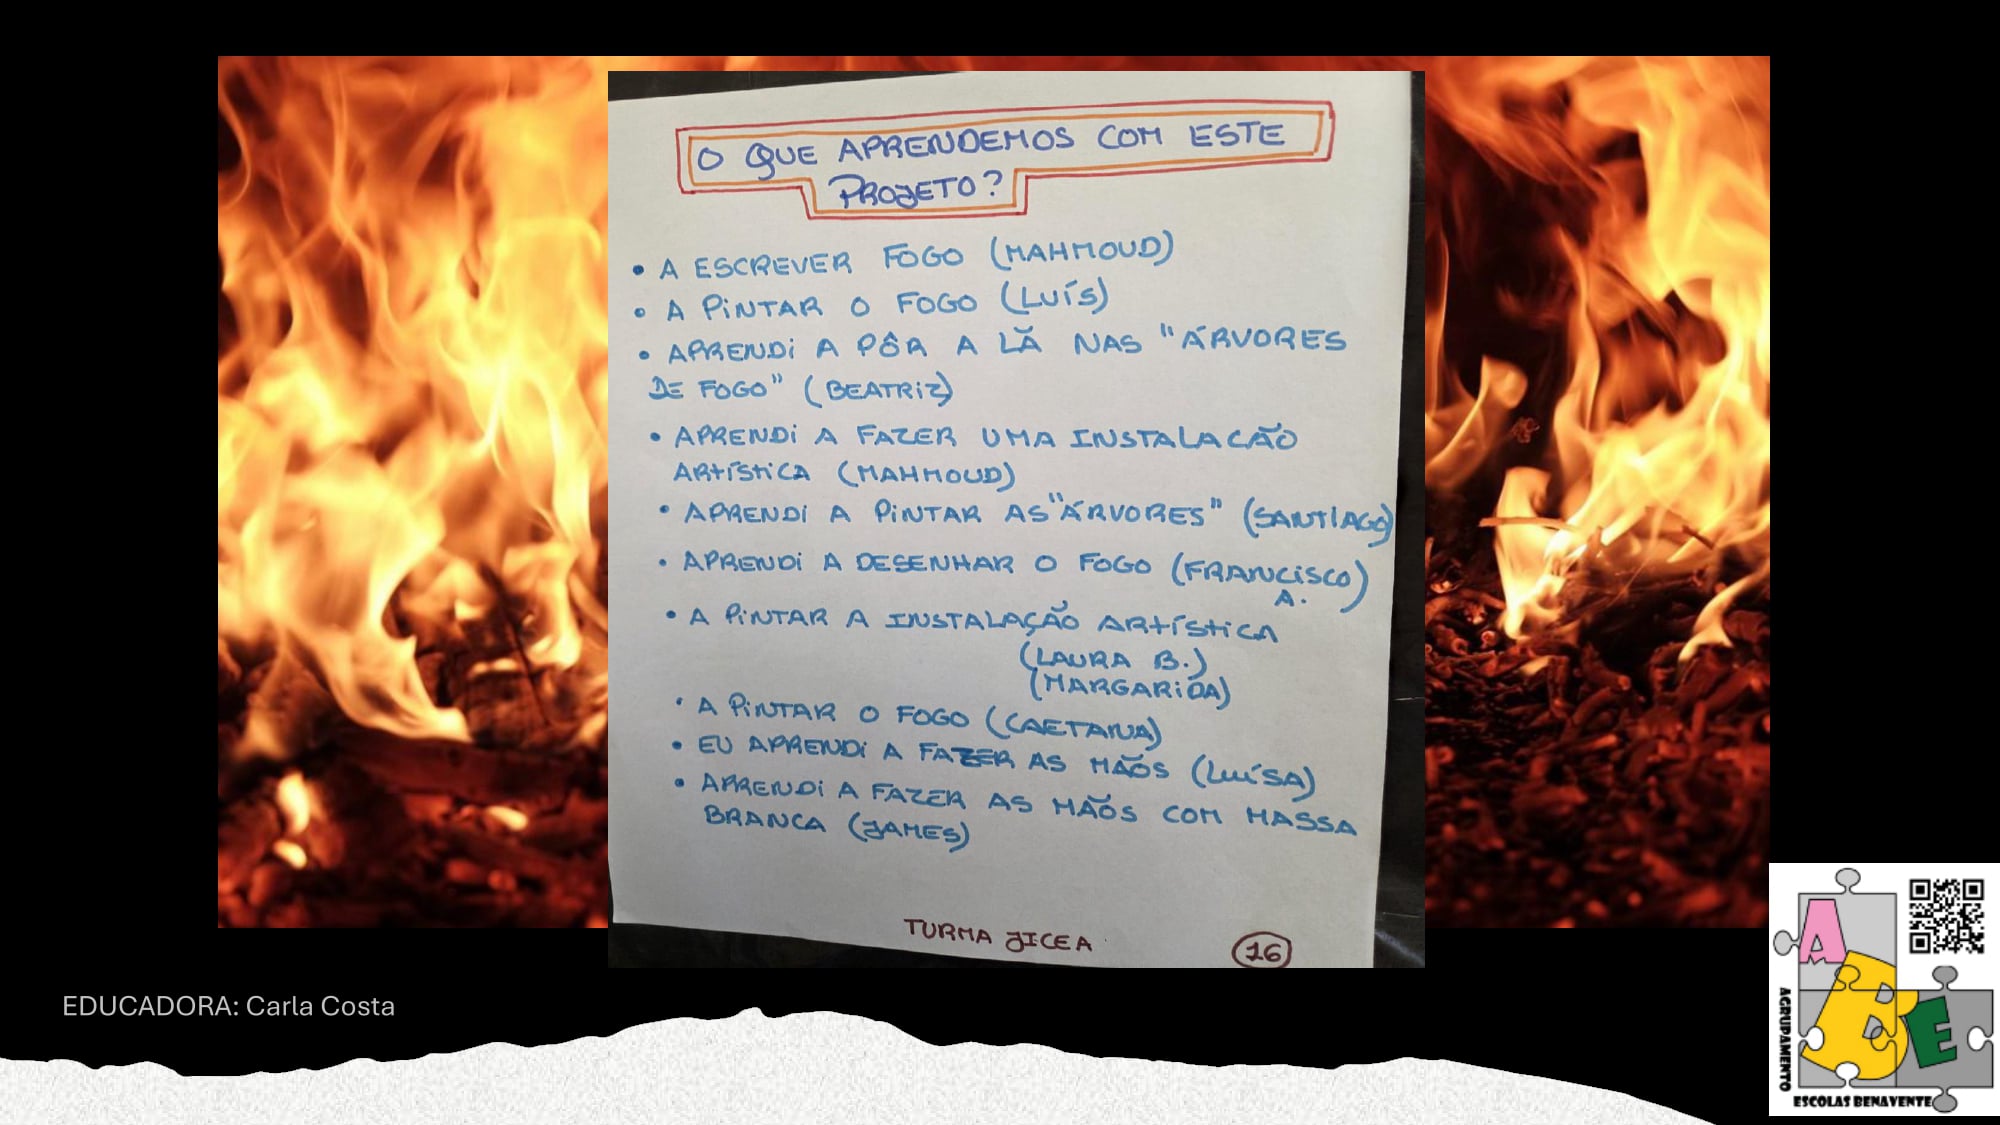 O QUE APRENDEMOS COM ESTE
PROJETO?
• A ESCREVER FOGO (MAHMOUD)
• A PINTAR O FOGO (LUÍS)
• APRENDI A PÔR A LÃ NAS "ÁRVORES
DE FOGO" (BEATRIZ)
• APRENDI A FAZER UMA INSTALACÃO
ARTÍSTICA (MAHMOUD)
• APRENDI A PINTAR AS "ÁRVORES" (SANTIAGO)
• APRENDI A DESENHAR O FOGO (FRANCISCO
A.)
• A PINTAR A INSTALAÇÃO ARTÍSTICA
(LAURA B.)
(MARGARIDA)
• A PINTAR O FOGO (CAETANA)
• EU APRENDI A FAZER AS MÃOS (LUÍSA)
• APRENDI A FAZER AS MÃOS COM MASSA
BRANCA (JAMES)
TURMA JICEA
16
EDUCADORA: Carla Costa
ABE
AGRUPAMENTO
ESCOLAS BENAVENTE